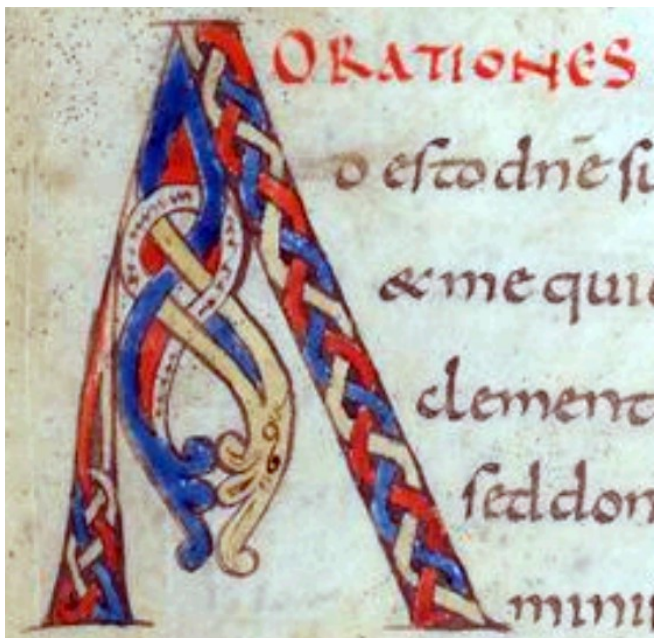 ORATIONES
A
o esto dnē su
& me qui
clement
sed don
minu